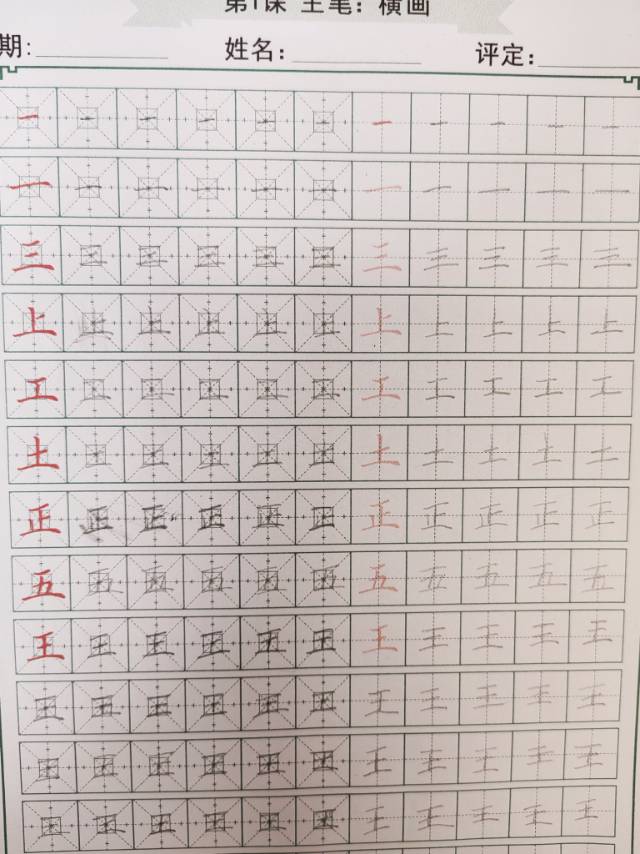 第1课 主笔：横画
期: 姓名: 评定:
一 一 一 一 一 一 一 一 一 一 一
一 一 一 一 一 一 一 一 一 一 一
三 三 三 三 三 三 三 三 三 三 三
上 上 上 上 上 上 上 上 上 上 上
工 工 工 工 工 工 工 工 工 工 工
土 土 土 土 土 土 土 土 土 土 土
正 正 正 正 正 正 正 正 正 正 正
五 五 五 五 五 五 五 五 五 五 五
王 王 王 王 王 王 王 王 王 王 王
王 王 王 王 王 王 王 王 王 王 王
王 王 王 王 王 王 王 王 王 王 王
王 王 王 王 王 王 王 王 王 王 王